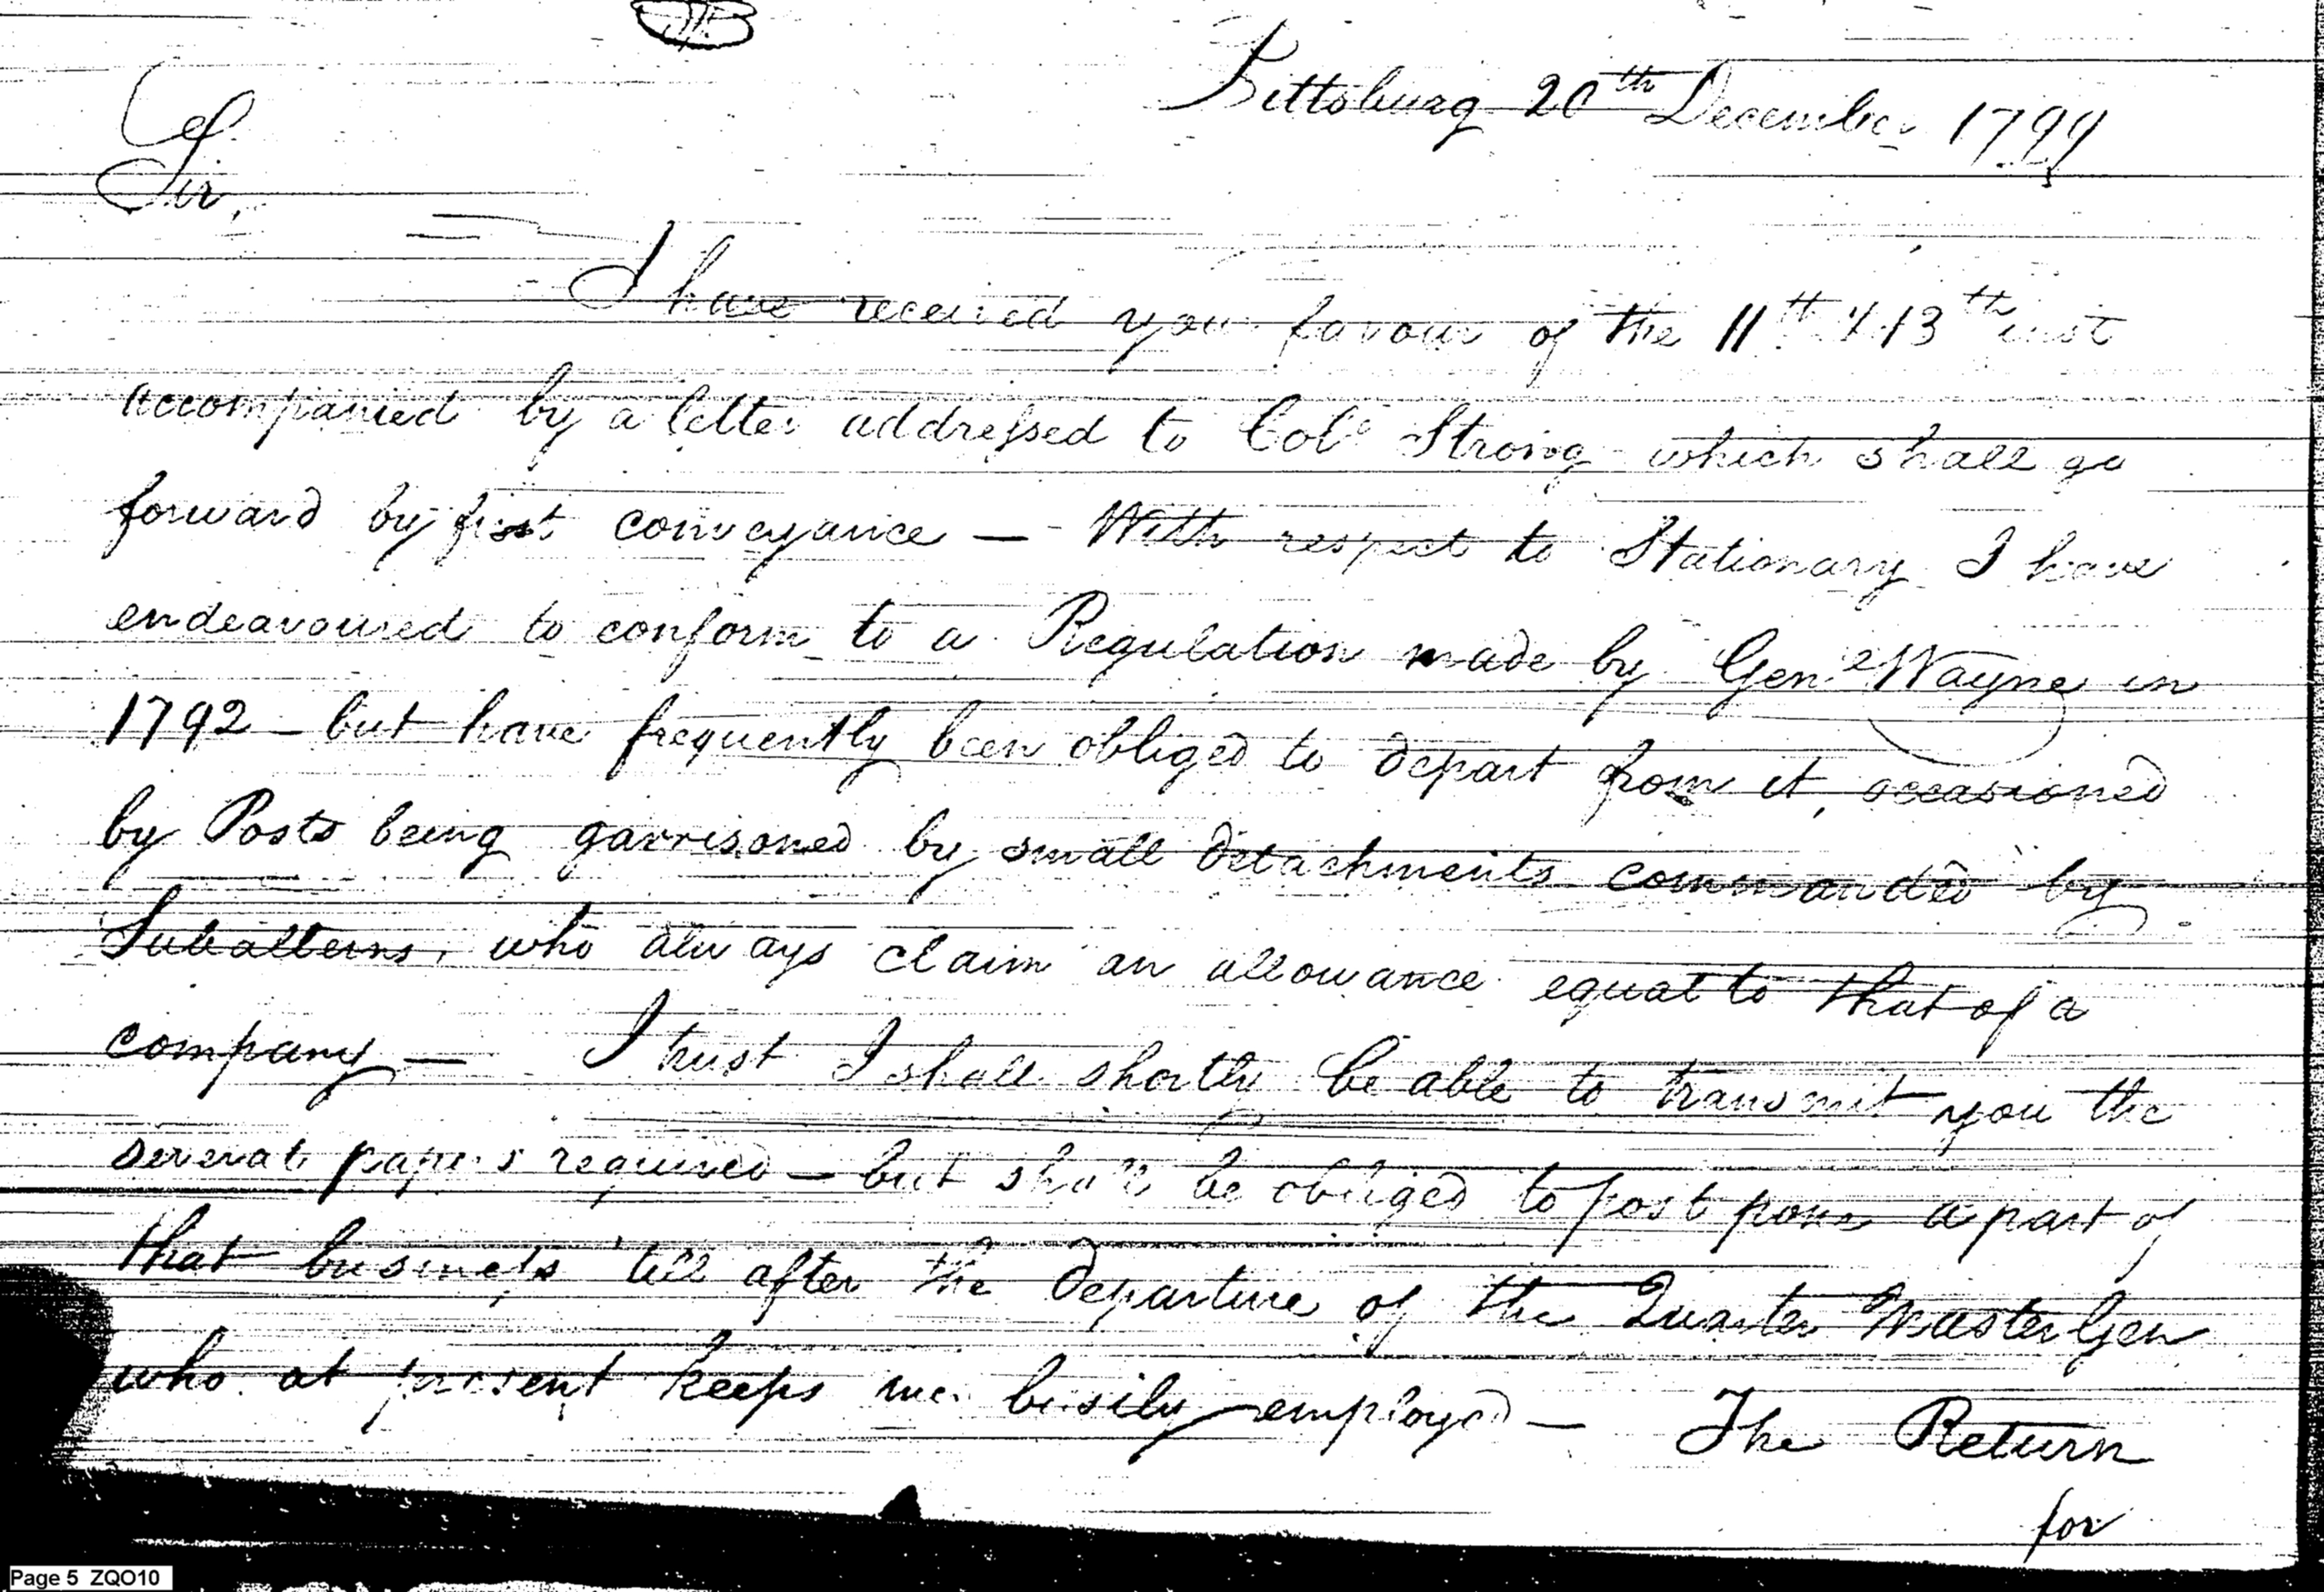 Pittsburg 20th December 1799
Sir,
I have received your favour of the 11th & 13th inst
accompanied by a letter addressed to Colo Strong which shall go
forward by first conveyance — With respect to Stationary I have
endeavoured to conform to a Regulation made by Genl Wayne in
1792 – but have frequently been obliged to depart from it, occasioned
by Posts being garrisoned by small detachments commanded by
Subalterns, who always claim an allowance equal to that of a
company — I trust I shall shortly be able to transmit you the
several papers required – but shall be obliged to post pone a part of
that business 'till after the departure of the Quarter Master Gen
who at present keeps me busily employed — The Return
for
Page 5 ZQO10